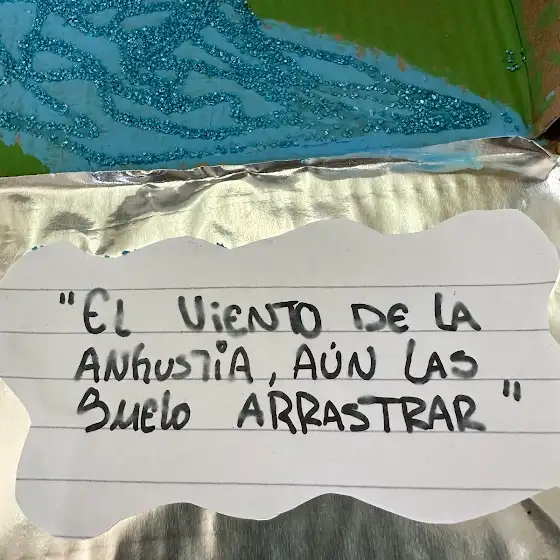 "EL VIENTO DE LA
ANGUSTIA, AÚN LAS
SUELO ARRASTRAR"